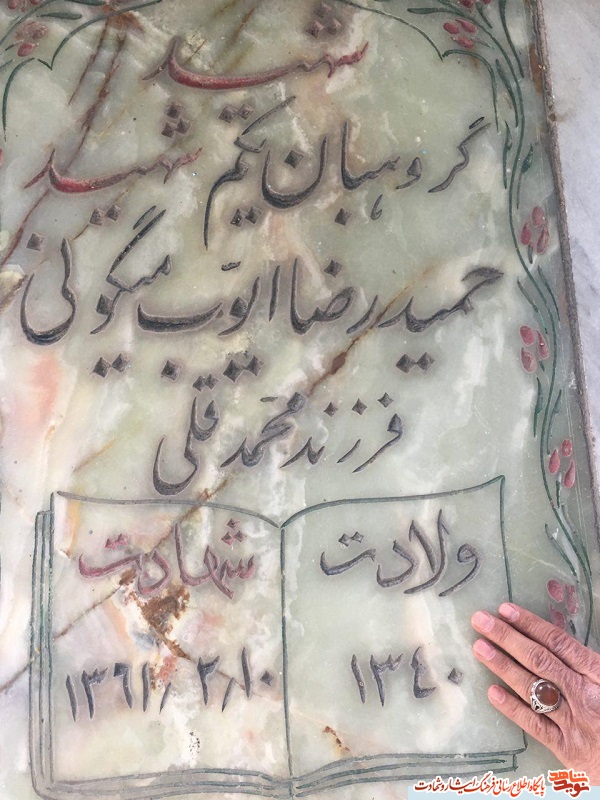 شهید
گروهبان یکم شهید
حمیدرضا ایوّب میگونی
فرزند محمّد قلی
ولادت
۱۳٤۰
شهادت
۱۳۶۱٫۲٫۱۰
نوید شاهد پایگاه اطلاع رسانی فرهنگ ایثار و شهادت